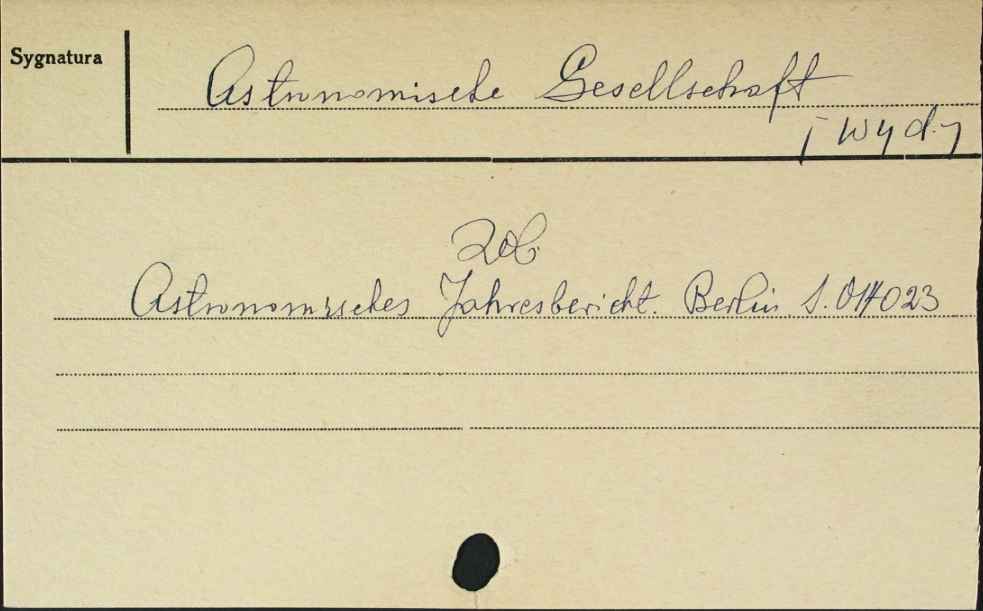 Sygnatura
Astronomische Gesellschaft
[wyd.]
zob.
Astronomisches Jahresbericht. Berlin. S. 014023